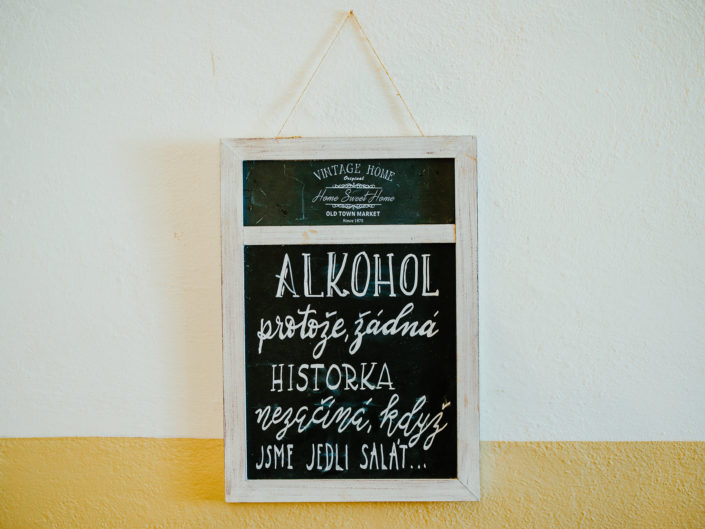 VINTAGE HOME
Original
Home Sweet Home
OLD TOWN MARKET
Since 1875
ALKOHOL
protože, žádná
HISTORKA
nezačíná, když
JSME JEDLI SALÁT...